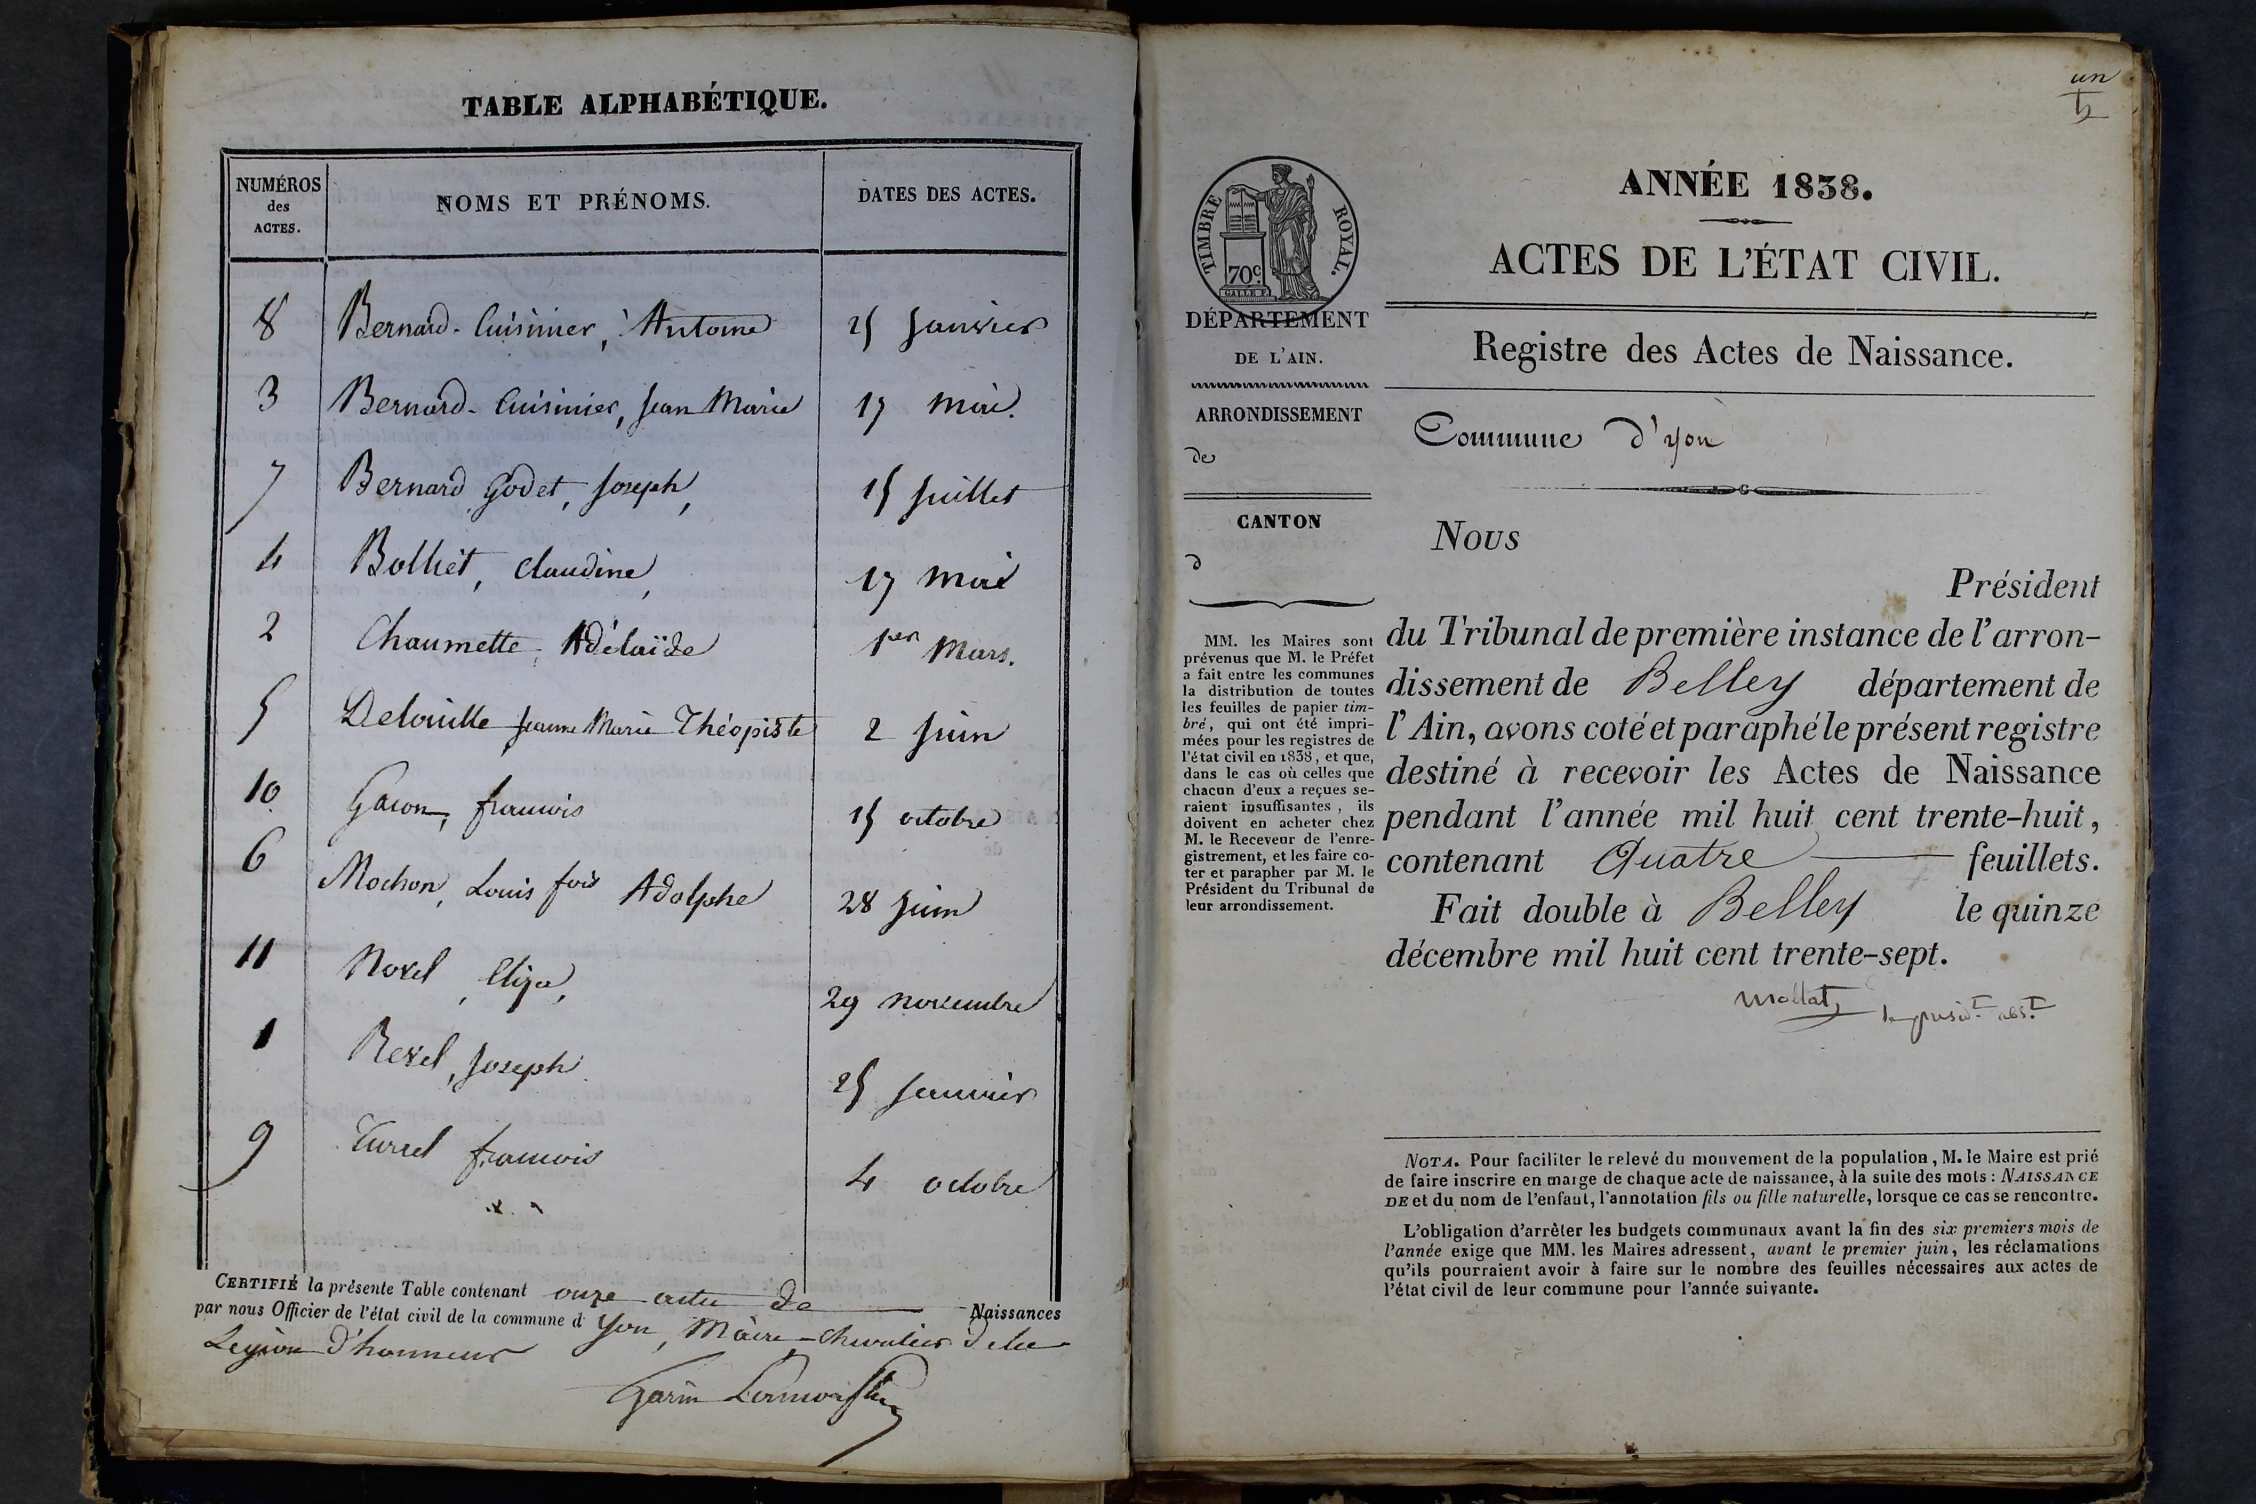 TABLE ALPHABÉTIQUE.
NUMÉROS
des
ACTES.
NOMS ET PRÉNOMS.
DATES DES ACTES.
8 Bernard-Cuisinier, Antoine 25 Janvier
3 Bernard-Cuisinier, Jean Marie 17 Mai.
7 Bernard Godet, Joseph, 15 Juillet
4 Bolliet, Claudine, 17 Mai
2 Chaumette, Adélaïde 1er Mars.
5 Jeanne Marie Théopiste 2 Juin
10 Gacon, françois 15 octobre
6 Mochon, Louis fois Adolphe 28 Juin
11 Novel, Eliza, 29 novembre
1 Revel, Joseph 25 Janvier
9 françois 4 octobre
CERTIFIÉ la présente Table contenant onze actes de Naissances
par nous Officier de l'état civil de la commune d'yon, Maire, Chevalier de la
Légion d'honneur
Garin
un
ANNÉE 1838.
ACTES DE L'ÉTAT CIVIL.
TIMBRE ROYAL.
70c.
DÉPARTEMENT
DE L'AIN.
ARRONDISSEMENT
de
CANTON
d
MM. les Maires sont
prévenus que M. le Préfet
a fait entre les communes
la distribution de toutes
les feuilles de papier tim-
bré, qui ont été impri-
mées pour les registres de
l'état civil en 1838, et que,
dans le cas où celles que
chacun d'eux a reçues se-
raient insuffisantes, ils
doivent en acheter chez
M. le Receveur de l'enre-
gistrement, et les faire co-
ter et parapher par M. le
Président du Tribunal de
leur arrondissement.
Registre des Actes de Naissance.
Commune d'yon
Nous
Président
du Tribunal de première instance de l'arron-
dissement de Belley département de
l'Ain, avons coté et paraphé le présent registre
destiné à recevoir les Actes de Naissance
pendant l'année mil huit cent trente-huit,
contenant Quatre feuillets.
Fait double à Belley le quinze
décembre mil huit cent trente-sept.
Mollat
NOTA. Pour faciliter le relevé du mouvement de la population, M. le Maire est prié
de faire inscrire en marge de chaque acte de naissance, à la suite des mots : NAISSANCE
DE et du nom de l'enfant, l'annotation fils ou fille naturelle, lorsque ce cas se rencontre.
L'obligation d'arrêter les budgets communaux avant la fin des six premiers mois de
l'année exige que MM. les Maires adressent, avant le premier juin, les réclamations
qu'ils pourraient avoir à faire sur le nombre des feuilles nécessaires aux actes de
l'état civil de leur commune pour l'année suivante.